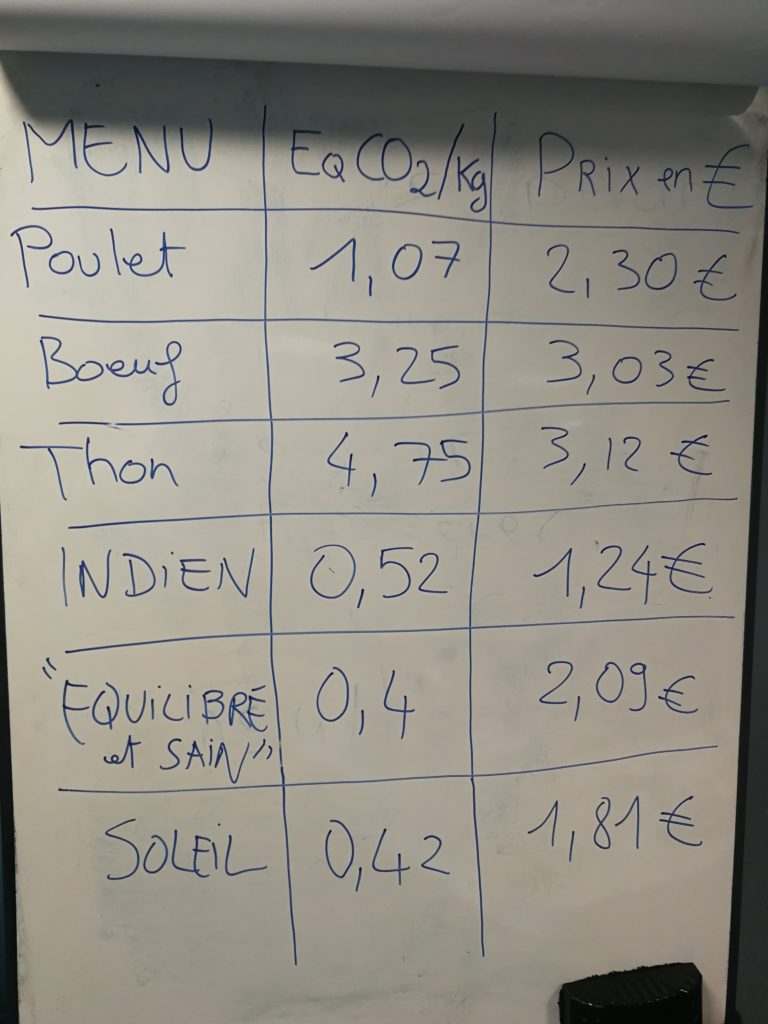 MENU EqCO2/kg PRiX en €
Poulet 1,07 2,30 €
Boeuf 3,25 3,03 €
Thon 4,75 3,12 €
INDiEN 0,52 1,24 €
"EQUiLiBRÉ 0,4 2,09 €
et SAiN"
SOLEiL 0,42 1,81 €